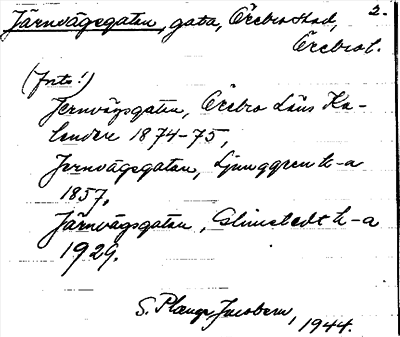 Järnvägsgatan, gata, Örebro stad, 2.
Örebro l.
(forts.)
Jernvägsgatan, Örebro Läns Ka-
lender 1874-75,
Jernvägsgatan, Ljunggren k-a
1857,
Järnvägsgatan, Glimstedt k-a
1929.
S. Plange Jacobson,
1944.